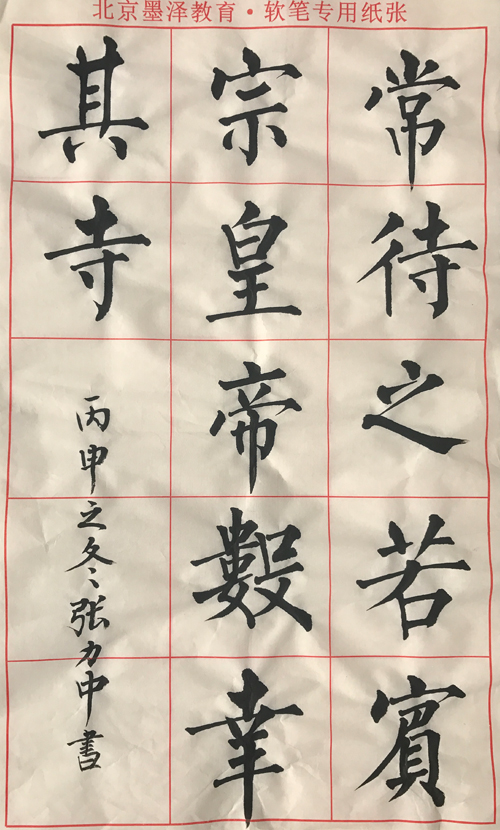 北京墨泽教育·软笔专用纸张
常待之若賓
宗皇帝數幸
其寺
丙申之冬張力中書